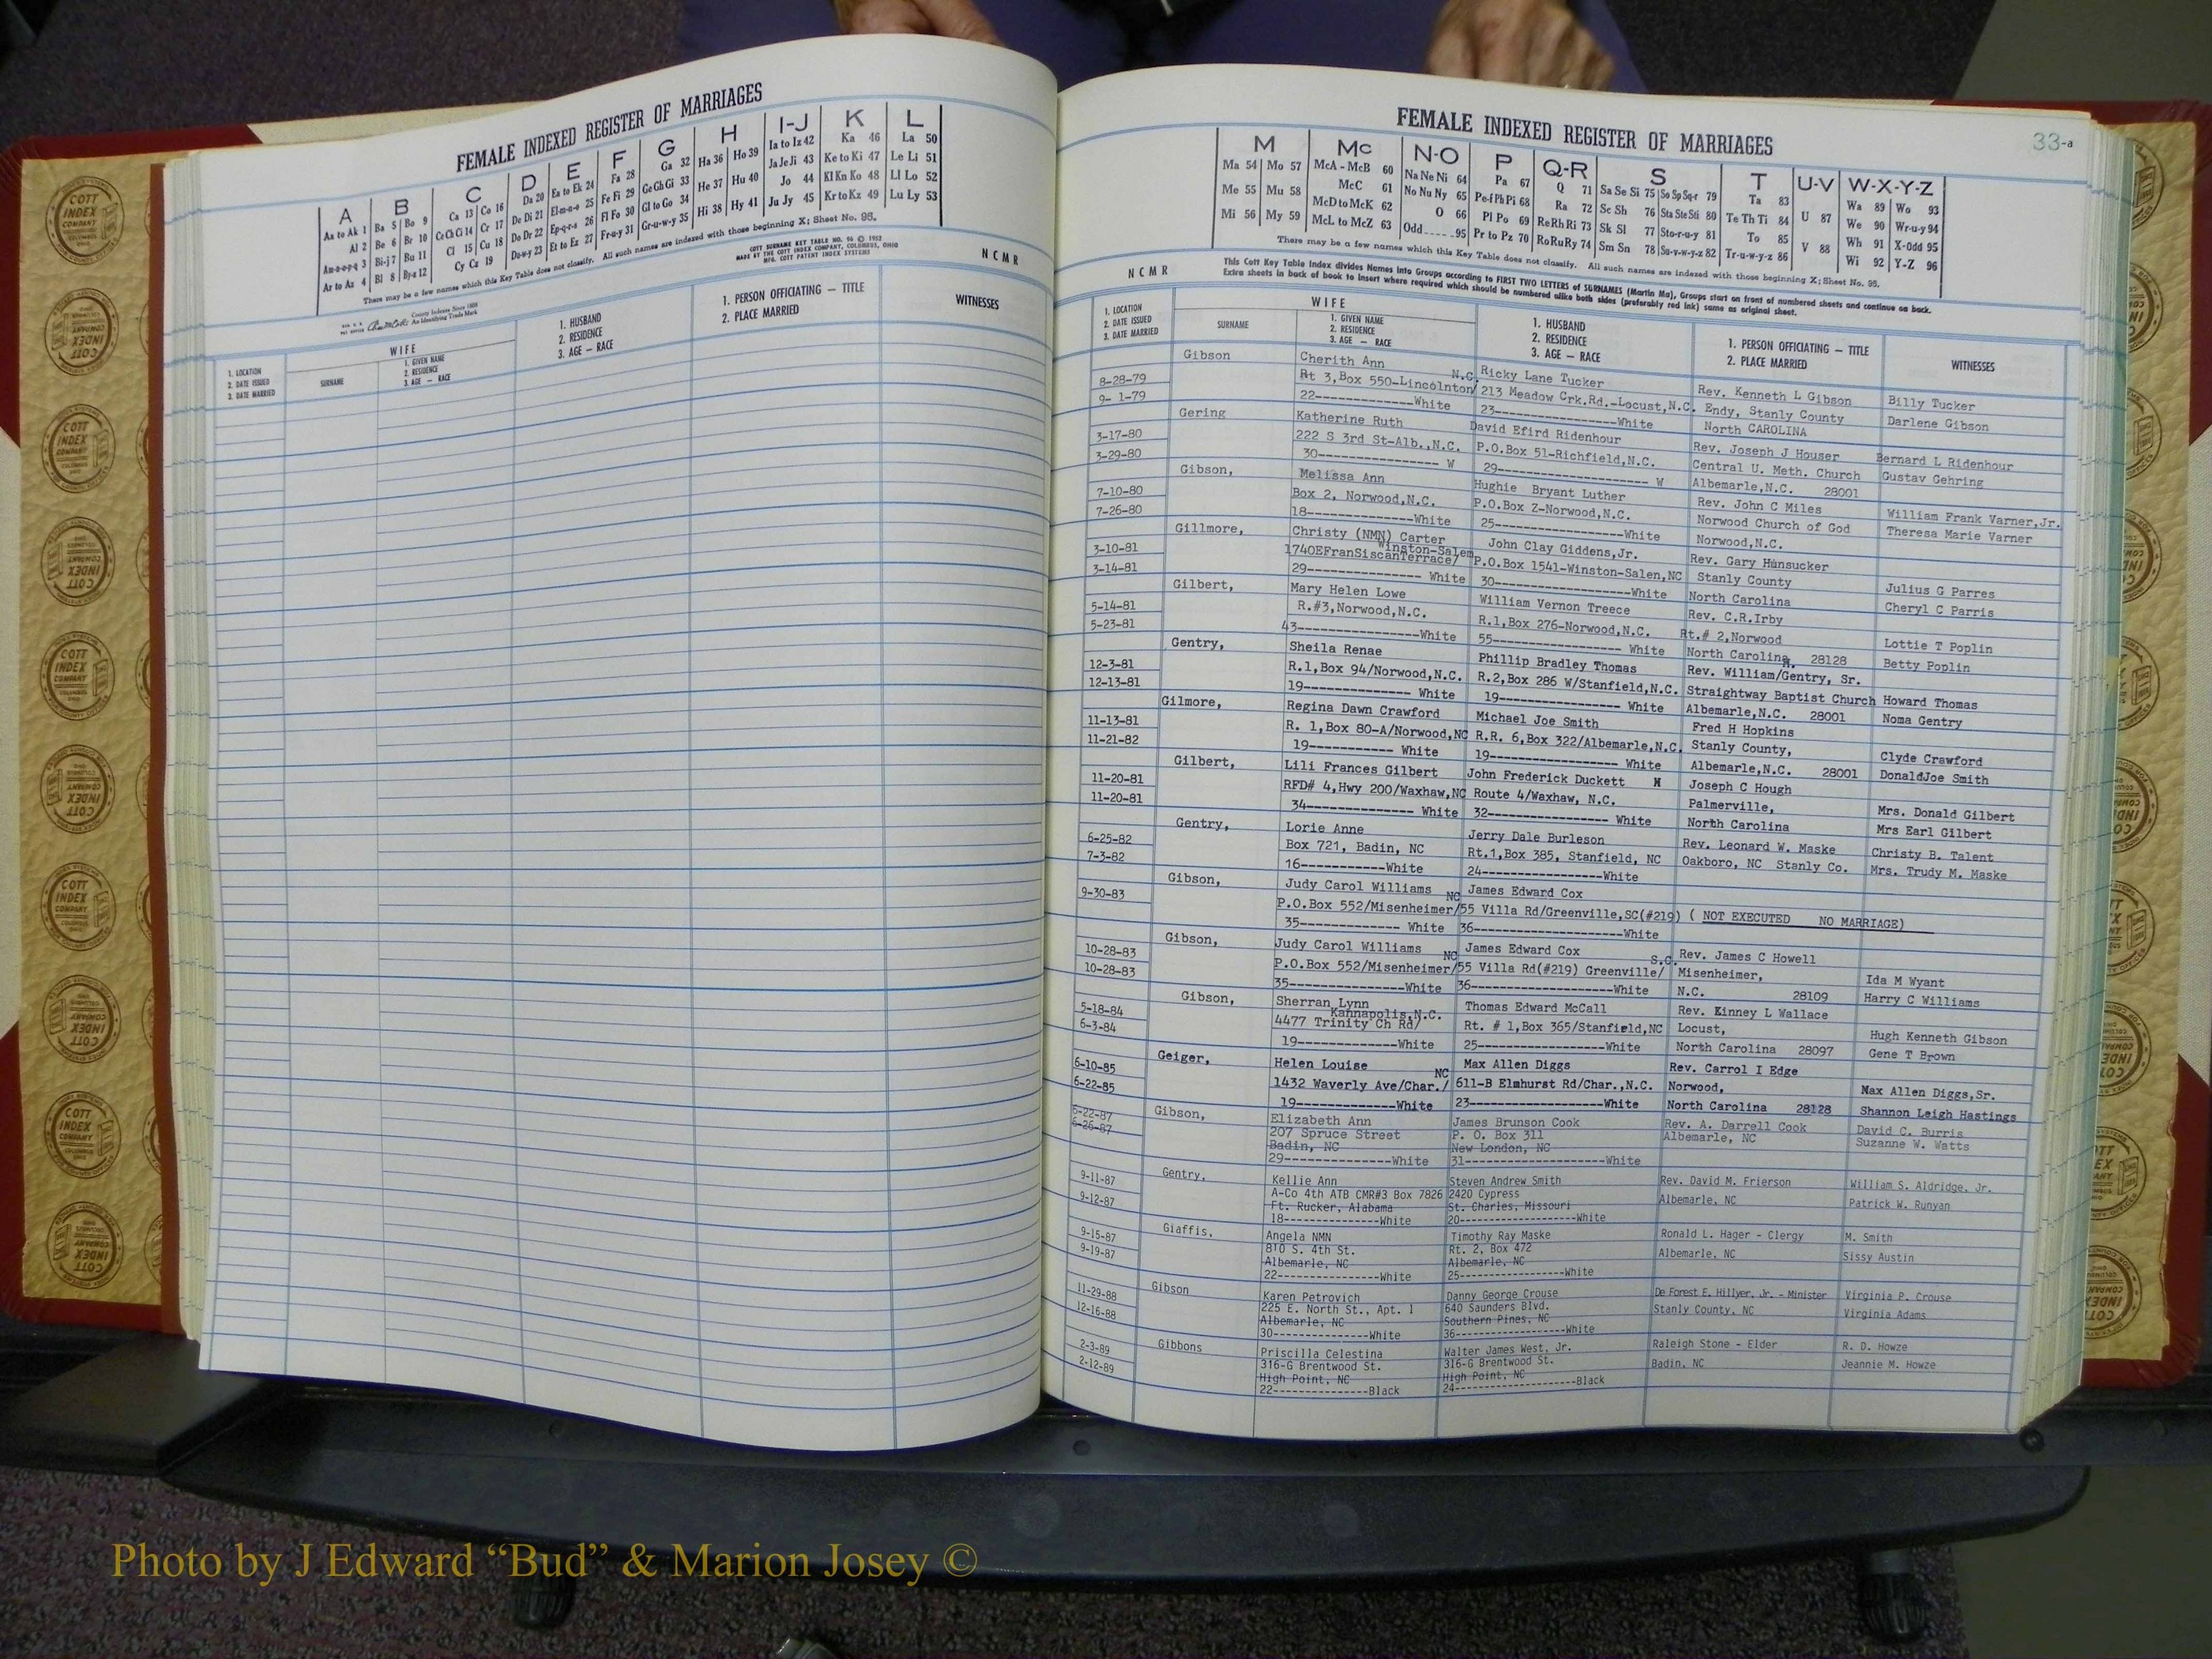 FEMALE INDEXED REGISTER OF MARRIAGES
A B C D E F G H I-J K L
Aa to Ak 1 Ba 5 Bo 9 Ca 13 Co 16 Da 20 Ea to Ek 24 Fa 28 Ga 32 Ha 36 Ho 39 Ia to Iz 42 Ka 46 La 50
Al 2 Be 6 Br 10 Ce Ch Ci 14 Cr 17 De Di 21 El-m-n-o 25 Fe Fi 29 Ge Gh Gi 33 He 37 Hu 40 Ja Je Ji 43 Ke to Ki 47 Le Li 51
Am-n-o-p-q 3 Bi-j 7 Bu 11 Cl 15 Cu 18 Do Dr 22 Ep-q-r-s 26 Fl Fo 30 Gl to Go 34 Hi 38 Hy 41 Jo 44 Kl Kn Ko 48 Ll Lo 52
Ar to Az 4 Bl 8 By-z 12 Cy Cz 19 Du-w-y 23 Et to Ez 27 Fr-u-y 31 Gr-u-w-y 35 Ju Jy 45 Kr to Kz 49 Lu Ly 53
There may be a few names which this Key Table does not classify. All such names are indexed with those beginning X; Sheet No. 95.
COTT SURNAME KEY TABLE NO. 96 © 1952
MADE BY THE COTT INDEX COMPANY, COLUMBUS, OHIO
MFG. COTT PATENT INDEX SYSTEMS
NCMR
County Indexes Since 1888
An Identifying Trade Mark
1. LOCATION
2. DATE ISSUED
3. DATE MARRIED
WIFE
SURNAME
1. GIVEN NAME
2. RESIDENCE
3. AGE — RACE
1. HUSBAND
2. RESIDENCE
3. AGE — RACE
1. PERSON OFFICIATING — TITLE
2. PLACE MARRIED
WITNESSES
FEMALE INDEXED REGISTER OF MARRIAGES
33-a
M Mc N-O P Q-R S T U-V W-X-Y-Z
Ma 54 Mo 57 McA - McB 60 Na Ne Ni 64 Pa 67 Q 71 Sa Se Si 75 So Sp Sq-r 79 Ta 83 U 87 Wa 89 Wo 93
Me 55 Mu 58 McC 61 No Nu Ny 65 Pe-f Ph Pi 68 Ra 72 Sc Sh 76 Sta Ste Sti 80 Te Th Ti 84 V 88 We 90 Wr-u-y 94
Mi 56 My 59 McD to McK 62 O 66 Pl Po 69 Re Rh Ri 73 Sk Sl 77 Sto-r-u-y 81 To 85 Wh 91 X-odd 95
McL to McZ 63 Odd-----95 Pr to Pz 70 Ro Ru Ry 74 Sm Sn 78 Su-v-w-y-z 82 Tr-u-w-y-z 86 Wi 92 Y-Z 96
There may be a few names which this Key Table does not classify. All such names are indexed with those beginning X; Sheet No. 95.
NCMR
This Cott Key Table Index divides Names into Groups according to FIRST TWO LETTERS of SURNAMES (Martin Ma), Groups start on front of numbered sheets and continue on back.
Extra sheets in back of book to insert where required which should be numbered alike both sides (preferably red ink) same as original sheet.
1. LOCATION
2. DATE ISSUED
3. DATE MARRIED
WIFE
SURNAME
1. GIVEN NAME
2. RESIDENCE
3. AGE — RACE
1. HUSBAND
2. RESIDENCE
3. AGE — RACE
1. PERSON OFFICIATING — TITLE
2. PLACE MARRIED
WITNESSES
Gibson Cherith Ann Ricky Lane Tucker Rev. Kenneth L Gibson Billy Tucker
8-28-79 Rt 3,Box 550-Lincolnton/ N.C. 213 Meadow Crk.Rd.-Locust,N.C. Endy, Stanly County Darlene Gibson
9- 1-79 22-------------White 23---------------White North CAROLINA
Gering Katherine Ruth David Efird Ridenhour Rev. Joseph J Houser Bernard L Ridenhour
3-17-80 222 S 3rd St-Alb.,N.C. P.O.Box 51-Richfield,N.C. Central U. Meth. Church Gustav Gehring
3-29-80 30---------------- W 29------------------- W Albemarle,N.C. 28001
Gibson, Melissa Ann Hughie Bryant Luther Rev. John C Miles William Frank Varner,Jr.
7-10-80 Box 2, Norwood,N.C. P.O.Box Z-Norwood,N.C. Norwood Church of God Theresa Marie Varner
7-26-80 18--------------White 25-----------------White Norwood,N.C.
Gillmore, Christy (NMN) Carter John Clay Giddens,Jr. Rev. Gary Hunsucker Julius G Parres
3-10-81 1740EFranSiscanTerrace/ Winston-Salem P.O.Box 1541-Winston-Salen,NC Stanly County Cheryl C Parris
3-14-81 29--------------- White 30-----------------White North Carolina
Gilbert, Mary Helen Lowe William Vernon Treece Rev. C.R.Irby Lottie T Poplin
5-14-81 R.#3,Norwood,N.C. R.1,Box 276-Norwood,N.C. Rt.# 2,Norwood Betty Poplin
5-23-81 43-----------------White 55----------------- White North Carolina 28128
Gentry, Sheila Renae Phillip Bradley Thomas Rev. William/Gentry, Sr. R. Howard Thomas
12-3-81 R.1,Box 94/Norwood,N.C. R.2,Box 286 W/Stanfield,N.C. Straightway Baptist Church Noma Gentry
12-13-81 19-------------- White 19--------------- White Albemarle,N.C. 28001
Gilmore, Regina Dawn Crawford Michael Joe Smith Fred H Hopkins Clyde Crawford
11-13-81 R. 1,Box 80-A/Norwood,NC R.R. 6,Box 322/Albemarle,N.C. Stanly County, DonaldJoe Smith
11-21-82 19----------- White 19---------------- White Albemarle,N.C. 28001
Gilbert, Lili Frances Gilbert John Frederick Duckett Joseph C Hough Mrs. Donald Gilbert
11-20-81 RFD# 4,Hwy 200/Waxhaw,NC Route 4/Waxhaw, N.C. Palmerville, Mrs Earl Gilbert
11-20-81 34--------------- White 32---------------- White North Carolina
Gentry, Lorie Anne Jerry Dale Burleson Rev. Leonard W. Maske Christy B. Talent
6-25-82 Box 721, Badin, NC Rt.1,Box 385, Stanfield, NC Oakboro, NC Stanly Co. Mrs. Trudy M. Maske
7-3-82 16-----------White 24-----------------White
Gibson, Judy Carol Williams James Edward Cox
9-30-83 P.O.Box 552/Misenheimer/ NC 55 Villa Rd/Greenville,SC(#219) ( NOT EXECUTED NO MARRIAGE)
35-------------- White 36---------------------White
Gibson, Judy Carol Williams James Edward Cox Rev. James C Howell Ida M Wyant
10-28-83 P.O.Box 552/Misenheimer/ NC 55 Villa Rd(#219) Greenville/ S.C. Misenheimer, Harry C Williams
10-28-83 35---------------White 36--------------------White N.C. 28109
Gibson, Sherran Lynn Thomas Edward McCall Rev. Kinney L Wallace Hugh Kenneth Gibson
5-18-84 4477 Trinity Ch Rd/ Kannapolis,N.C. Rt. # 1,Box 365/Stanfield,NC Locust, Gene T Brown
6-3-84 19--------------White 25------------------White North Carolina 28097
Geiger, Helen Louise Max Allen Diggs Rev. Carrol I Edge Max Allen Diggs,Sr.
6-10-85 1432 Waverly Ave/Char./ NC 611-B Elmhurst Rd/Char.,N.C. Norwood, Shannon Leigh Hastings
6-22-85 19--------------White 23-------------------White North Carolina 28128
Gibson, Elizabeth Ann James Brunson Cook Rev. A. Darrell Cook David C. Burris
6-22-87 207 Spruce Street P. O. Box 311 Albemarle, NC Suzanne W. Watts
6-26-87 Badin, NC New London, NC
29---------------White 31--------------------White
Gentry, Kellie Ann Steven Andrew Smith Rev. David M. Frierson William S. Aldridge, Jr.
9-11-87 A-Co 4th ATB CMR#3 Box 7826 2420 Cypress Albemarle, NC Patrick W. Runyan
9-12-87 Ft. Rucker, Alabama St. Charles, Missouri
18---------------White 20-------------------White
Giaffis, Angela NMN Timothy Ray Maske Ronald L. Hager - Clergy M. Smith
9-15-87 810 S. 4th St. Rt. 2, Box 472 Albemarle, NC Sissy Austin
9-19-87 Albemarle, NC Albemarle, NC
22-----------------White 25-----------------White
Gibson Karen Petrovich Danny George Crouse De Forest E. Hillyer, Jr. - Minister Virginia P. Crouse
11-29-88 225 E. North St., Apt. 1 640 Saunders Blvd. Stanly County, NC Virginia Adams
12-16-88 Albemarle, NC Southern Pines, NC
30----------------White 36------------------White
Gibbons Priscilla Celestina Walter James West, Jr. Raleigh Stone - Elder R. D. Howze
2-3-89 316-G Brentwood St. 316-G Brentwood St. Badin, NC Jeannie M. Howze
2-12-89 High Point, NC High Point, NC
22----------------Black 24--------------------Black
COTT INDEX COMPANY
Photo by J Edward “Bud” & Marion Josey ©